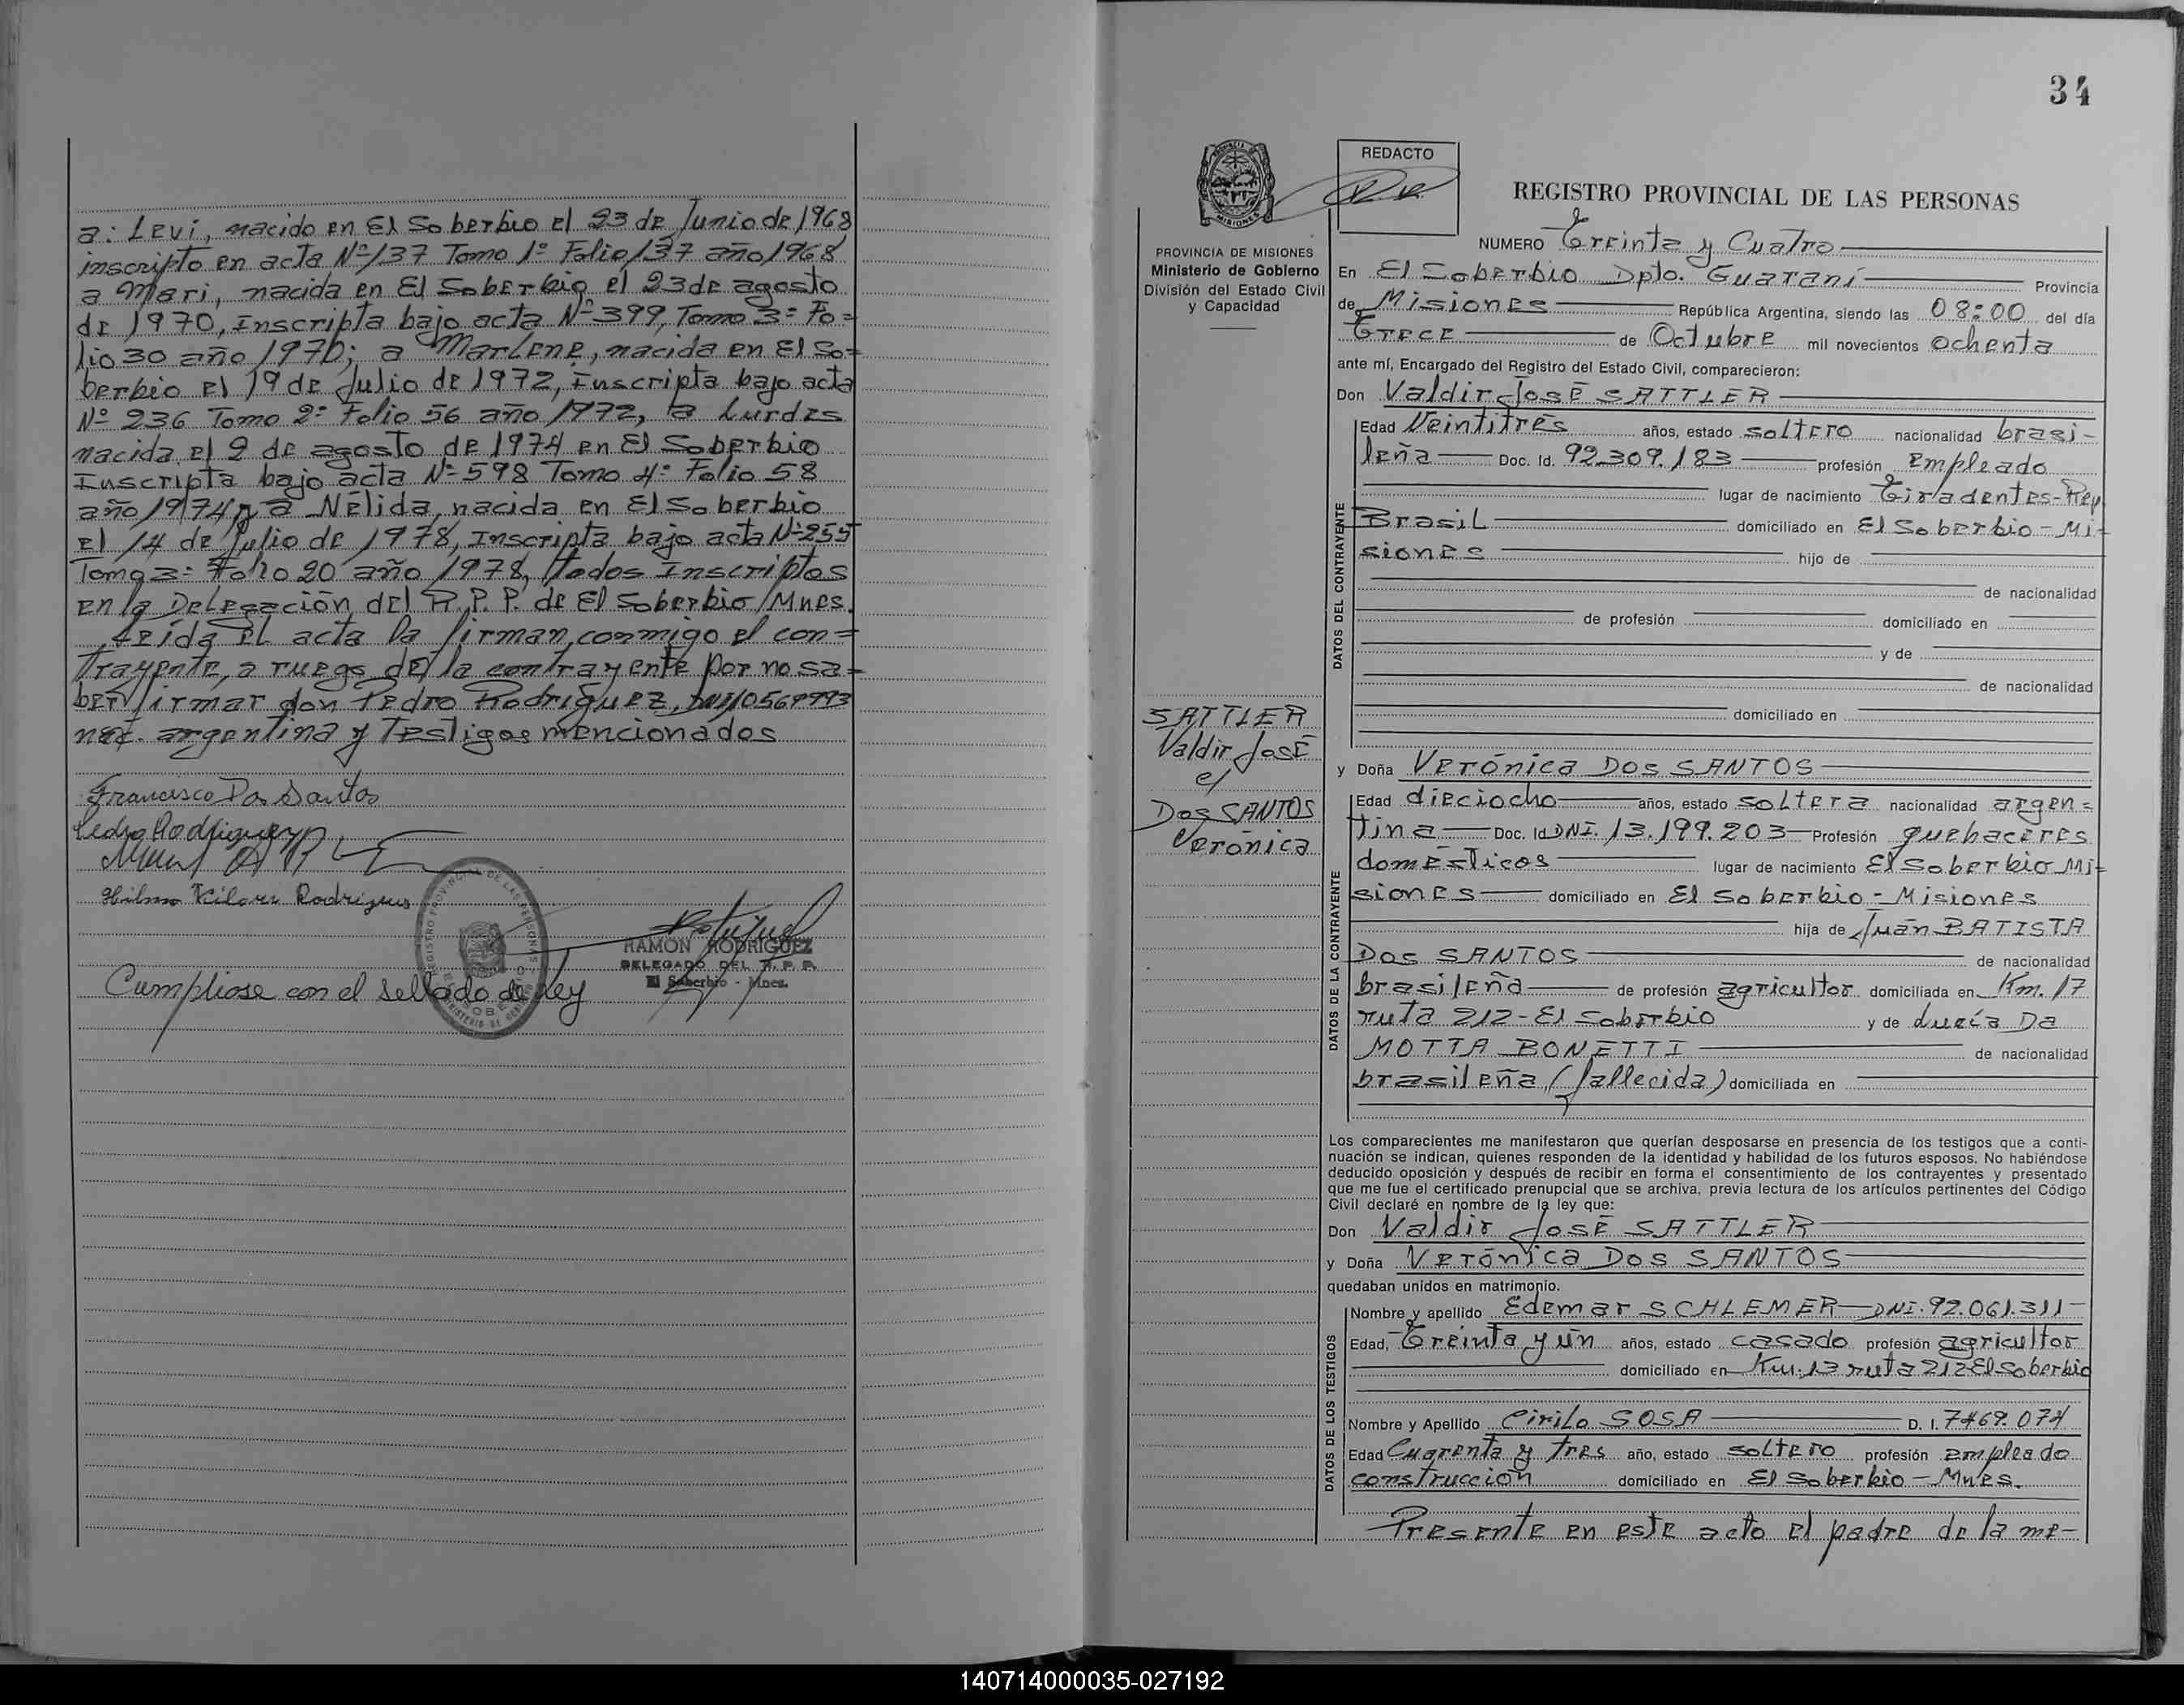 a: Levi, nacido en El Soberbio el 23 de Junio de 1968
inscripto en acta Nº 137 Tomo 1º Folio 137 año 1968
a Mari, nacida en El Soberbio el 23 de agosto
de 1970, Inscripta bajo acta Nº 399, Tomo 3º Fo=
lio 30 año 1970; a Marlene, nacida en El So=
berbio el 19 de Julio de 1972, Inscripta bajo acta
Nº 236 Tomo 2º Folio 56 año 1972, a Lurdes
nacida el 2 de agosto de 1974 en El Soberbio
Inscripta bajo acta Nº 598 Tomo 4º Folio 58
año 1974 y a Nélida, nacida en El Soberbio
el 14 de Julio de 1978, Inscripta bajo acta Nº 255
Tomo 2º Folio 20 año 1978, todos Inscriptos
en la Delegación del R.P.P. de El Soberbio/Mnes.
Leída el acta la firman conmigo el con=
trayente, a ruego de la contrayente por no sa=
ber firmar don Pedro Rodriguez, DNI
nac. argentina y Testigos mencionados
Francisco Dos Santos
Pedro Rodriguez
Rodrigues
RAMON RODRIGUEZ
DELEGADO DEL R. P. P.
El Soberbio - Mnes.
Cumpliose con el sellado de Ley
34
REDACTO
REGISTRO PROVINCIAL DE LAS PERSONAS
PROVINCIA DE MISIONES
Ministerio de Gobierno
División del Estado Civil
y Capacidad
NUMERO Treinta y Cuatro
En El Soberbio Dpto. Guaraní Provincia
de Misiones República Argentina, siendo las 08:00 del día
Trece de Octubre mil novecientos ochenta
ante mí, Encargado del Registro del Estado Civil, comparecieron:
Don Valdir José SATTLER
DATOS DEL CONTRAYENTE
Edad Veintitrés años, estado soltero nacionalidad brasi-
leña Doc. Id. 92.309.183 profesión Empleado
lugar de nacimiento Tiradentes-Rep
Brasil domiciliado en El Soberbio - Mi-
siones hijo de
de nacionalidad
de profesión domiciliado en
y de
de nacionalidad
domiciliado en
SATTLER
Valdir José
c/
Dos SANTOS
Verónica
y Doña Verónica Dos SANTOS
DATOS DE LA CONTRAYENTE
Edad dieciocho años, estado soltera nacionalidad argen=
tina Doc. Id DNI. 13.199.203 Profesión quehaceres
domésticos lugar de nacimiento El Soberbio Mi=
siones domiciliado en El Soberbio - Misiones
hija de Juan BATISTA
Dos SANTOS de nacionalidad
brasileña de profesión agricultor domiciliada en Km. 17
ruta 212 - El Soberbio y de Lucía Da
MOTTA BONETTI de nacionalidad
brasileña (fallecida) domiciliada en
Los comparecientes me manifestaron que querían desposarse en presencia de los testigos que a conti-
nuación se indican, quienes responden de la identidad y habilidad de los futuros esposos. No habiéndose
deducido oposición y después de recibir en forma el consentimiento de los contrayentes y presentado
que me fue el certificado prenupcial que se archiva, previa lectura de los artículos pertinentes del Código
Civil declaré en nombre de la ley que:
Don Valdir José SATTLER
y Doña Verónica Dos SANTOS
quedaban unidos en matrimonio.
DATOS DE LOS TESTIGOS
Nombre y apellido Edemar SCHLEMER DNI. 92.061.311
Edad, Treinta y un años, estado casado profesión agricultor
domiciliado en Km. 13 ruta 212 El Soberbio
Nombre y Apellido Cirilo SOSA D. I. 7469.074
Edad Cuarenta y tres año, estado soltero profesión empleado
construcción domiciliado en El Soberbio - Mnes.
Presente en este acto el padre de la me-
140714000035-027192